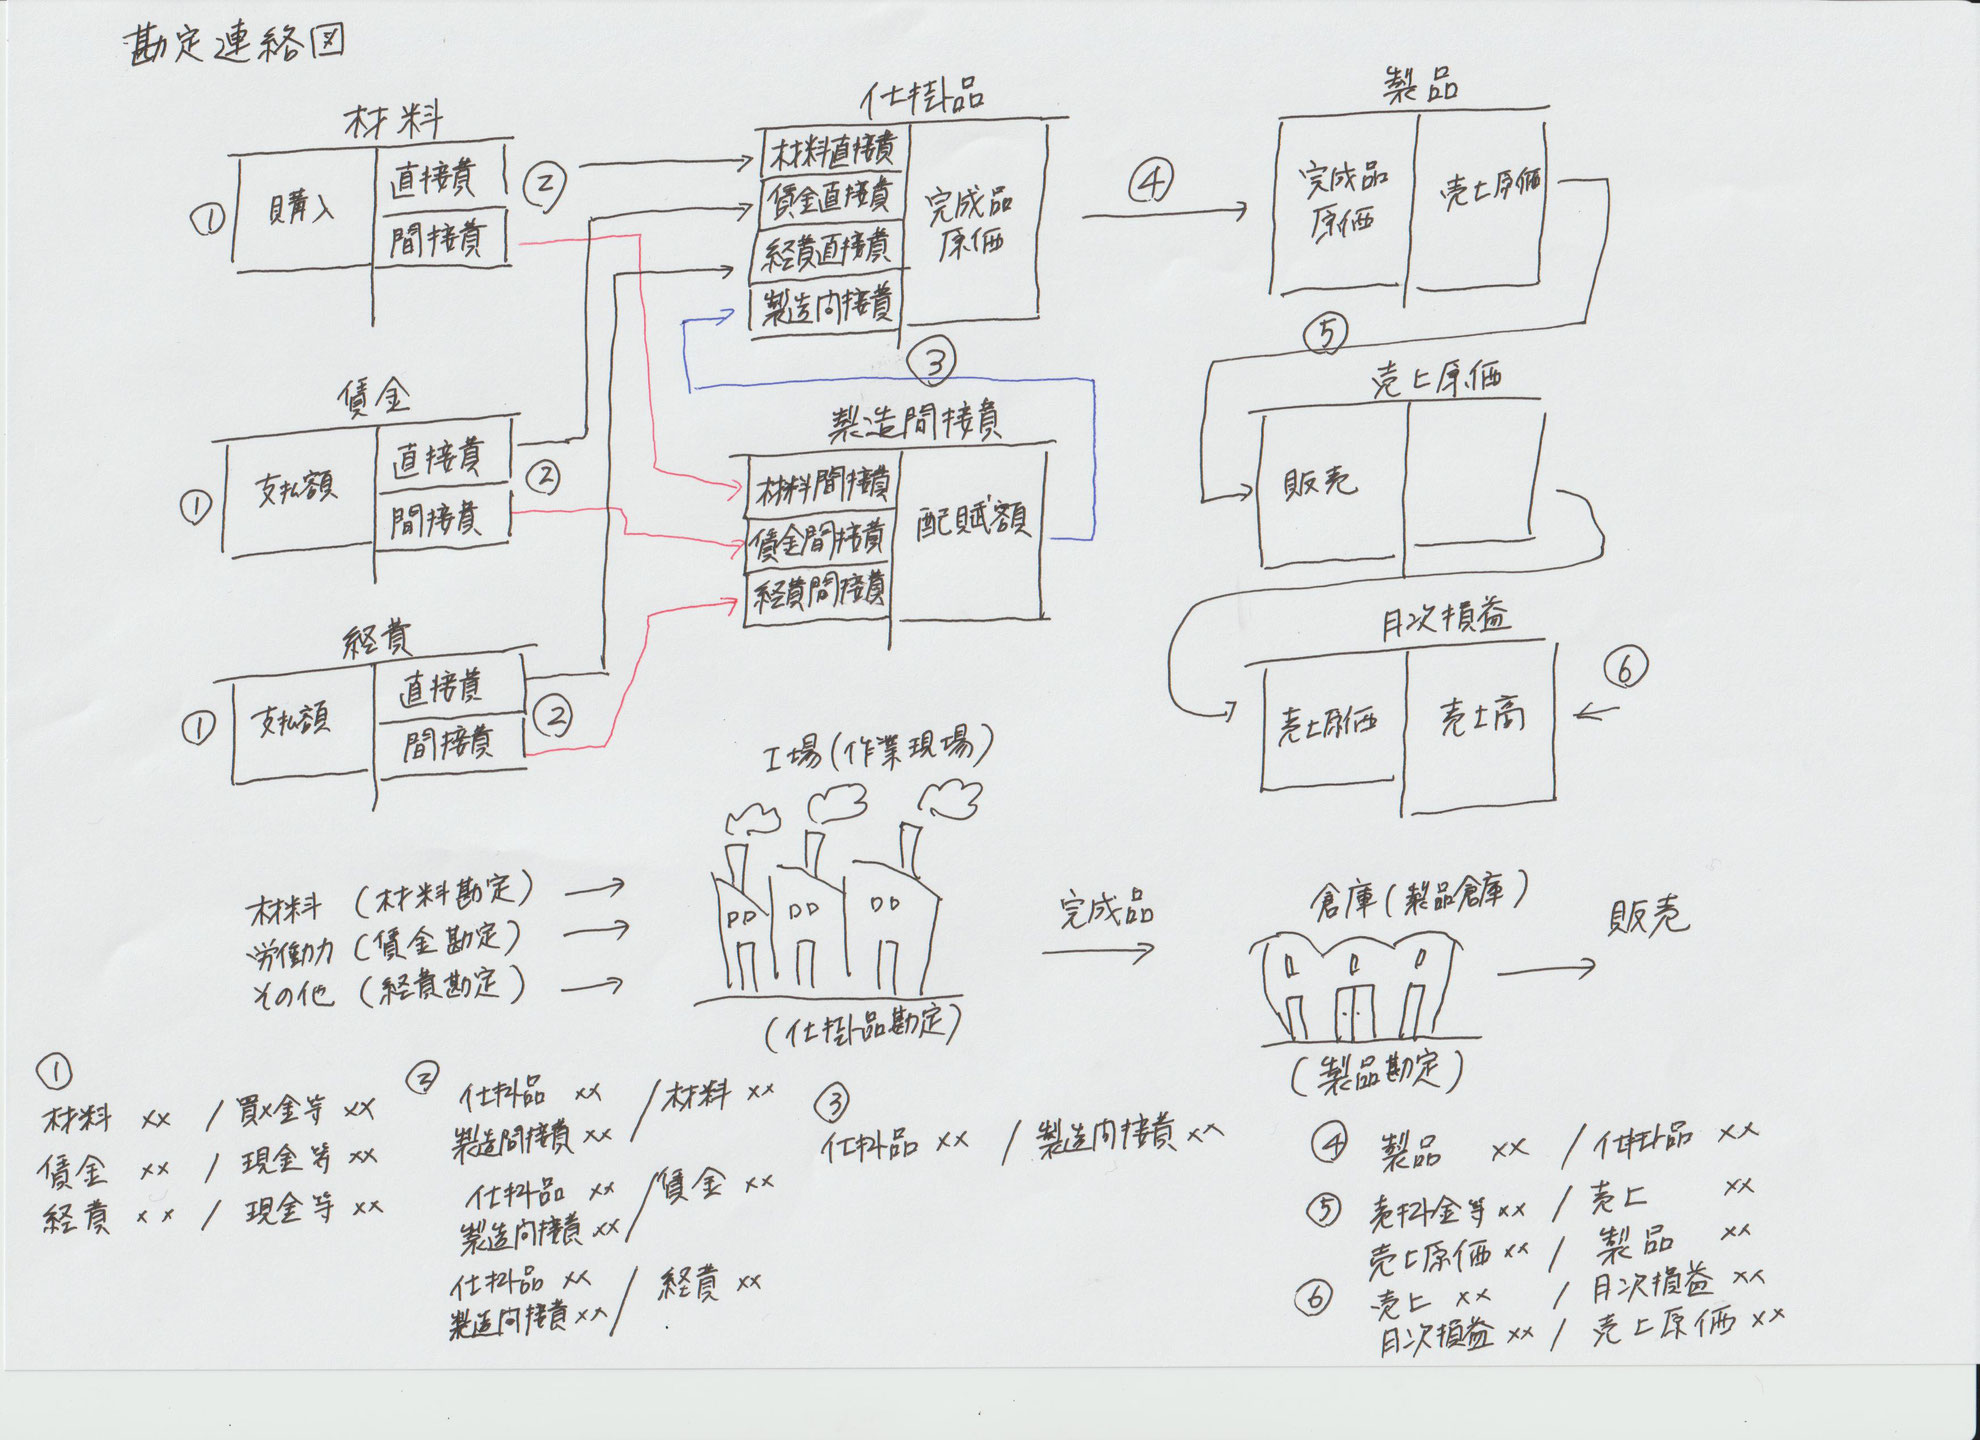 勘定連絡図
材料
①
購入
直接費
間接費
②
賃金
①
支払額
直接費
間接費
②
経費
①
支払額
直接費
間接費
②
仕掛品
材料直接費
賃金直接費
経費直接費
製造間接費
完成品
原価
③
製造間接費
材料間接費
賃金間接費
経費間接費
配賦額
④
製品
完成品
原価
売上原価
⑤
売上原価
販売
月次損益
売上原価
売上高
⑥
工場(作業現場)
材料 (材料勘定)
労働力 (賃金勘定)
その他 (経費勘定)
(仕掛品勘定)
完成品
倉庫(製品倉庫)
(製品勘定)
販売
①
材料 ×× / 買×金等 ××
賃金 ×× / 現金等 ××
経費 ×× / 現金等 ××
②
仕掛品 ×× / 材料 ××
製造間接費 ××
仕掛品 ×× / 賃金 ××
製造間接費 ××
仕掛品 ×× / 経費 ××
製造間接費 ××
③
仕掛品 ×× / 製造間接費 ××
④ 製品 ×× / 仕掛品 ××
⑤ 売掛金等 ×× / 売上 ××
売上原価 ×× / 製品 ××
⑥ 売上 ×× / 月次損益 ××
月次損益 ×× / 売上原価 ××